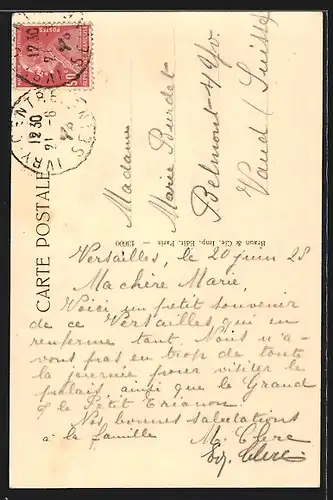 Madame
Marie Burdet
Belmont s/Yv.
Vaud (Suisse)
CARTE POSTALE
Braun & Cie, Imp. Edit. Paris — 13000
Versailles, le 20 juin 28
Ma chère Marie,
Voici un petit souvenir
de ce Versailles qui en
renferme tant. Nous n'a-
vons pas en trop de toute
la journée pour visiter le
palais, ainsi que le Grand
& le Petit Trianon.
Nos bonnes salutations
à la famille
M. Clerc
Clerc
POSTES
12 30
21-6